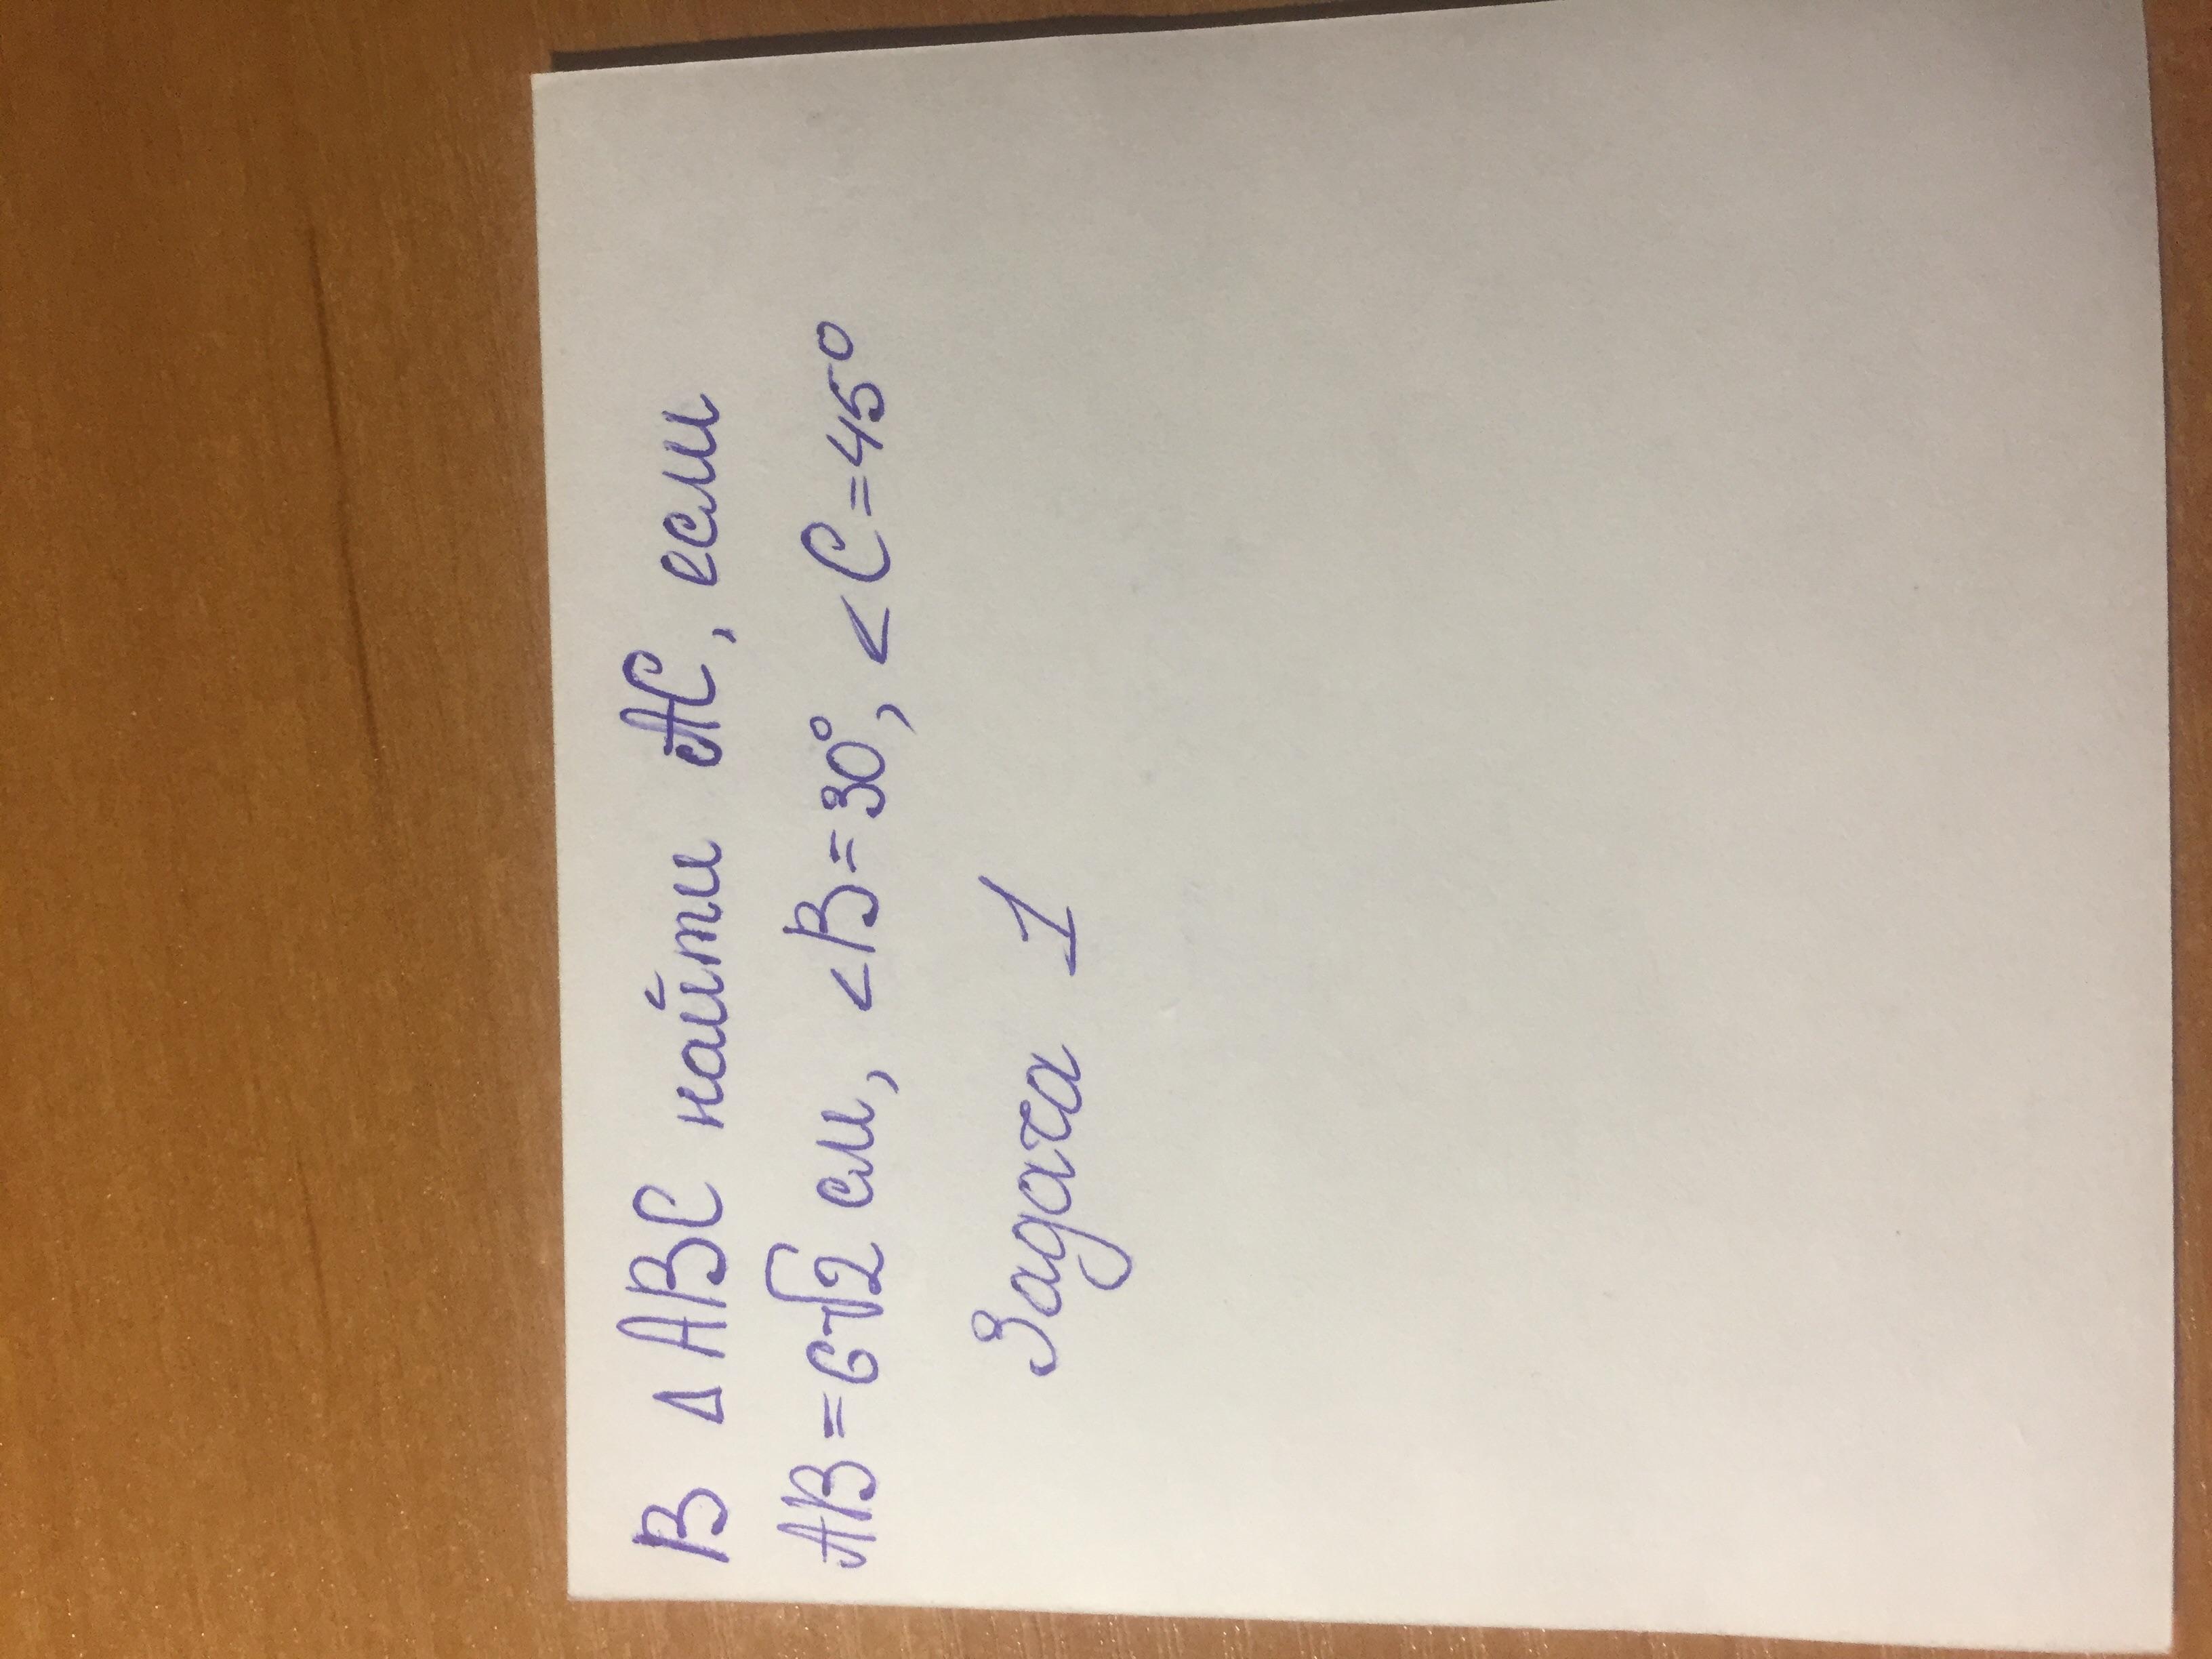 В Δ ABC найти AC, если
AB=6√2 см, <B=30°, <C=45°
Задача 1